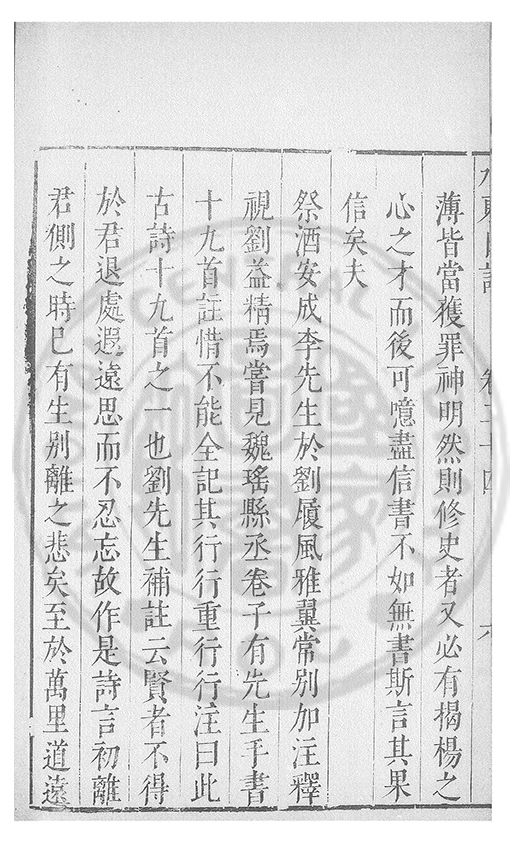 薄皆當獲罪神明然則修史者又必有揭楊之
心之才而後可憶盡信書不如無書斯言其果
信矣夫
祭酒安成李先生於劉履風雅翼常別加注釋
視劉益精焉嘗見魏瑤縣丞卷子有先生手書
十九首註惜不能全記其行行重行行注曰此
古詩十九首之一也劉先生補註云賢者不得
於君退處遐遠思而不忍忘故作是詩言初離
君側之時已有生別離之悲矣至於萬里道遠